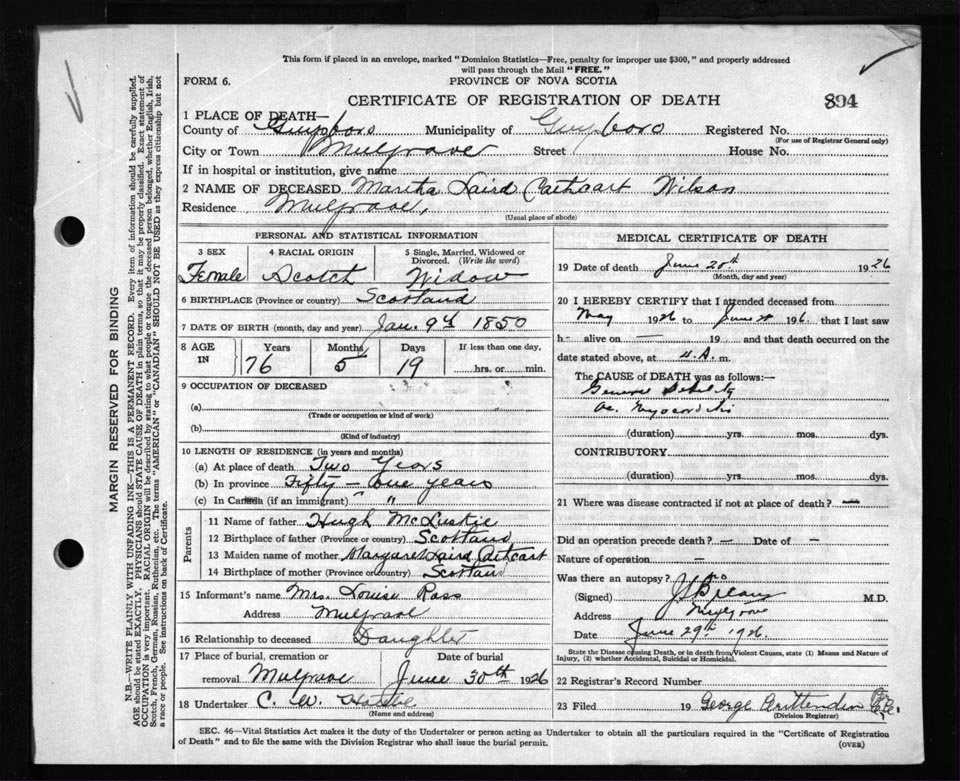 This form if placed in an envelope, marked "Dominion Statistics—Free, penalty for improper use $300," and properly addressed
will pass through the Mail "FREE."
FORM 6.
PROVINCE OF NOVA SCOTIA
CERTIFICATE OF REGISTRATION OF DEATH
894
1 PLACE OF DEATH—
County of Guysboro Municipality of Guysboro Registered No.
(For use of Registrar General only)
City or Town Mulgrave Street House No.
If in hospital or institution, give name
2 NAME OF DECEASED Martha Laird Cathcart Wilson
Residence Mulgrave,
(Usual place of abode)
PERSONAL AND STATISTICAL INFORMATION
3 SEX 4 RACIAL ORIGIN 5 Single, Married, Widowed or
Divorced. (Write the word)
Female Scotch Widow
6 BIRTHPLACE (Province or country) Scotland
7 DATE OF BIRTH (month, day and year) Jan. 9th 1850
8 AGE IN Years Months Days If less than one day,
76 5 19 hrs. or min.
9 OCCUPATION OF DECEASED
(a)
(Trade or occupation or kind of work)
(b)
(Kind of industry)
10 LENGTH OF RESIDENCE (in years and months)
(a) At place of death Two Years
(b) In province Fifty-one years
(c) In Canada (if an immigrant) " "
Parents
11 Name of father Hugh McLuskie
12 Birthplace of father (Province or country) Scotland
13 Maiden name of mother Margaret Laird Cathcart
14 Birthplace of mother (Province or country) Scotland
15 Informant's name Mrs. Louise Ross
Address Mulgrave
16 Relationship to deceased Daughter
17 Place of burial, cremation or Date of burial
removal Mulgrave June 30th 1926
18 Undertaker C. W.
(Name and address)
MEDICAL CERTIFICATE OF DEATH
19 Date of death June 28th 1926
(Month, day and year)
20 I HEREBY CERTIFY that I attended deceased from
May 1926 to June 1926. that I last saw
h— alive on — 19 and that death occurred on the
date stated above, at 4 A. m.
The CAUSE OF DEATH was as follows:—
General Debility
ac. Myocarditis
(duration) yrs. mos. dys.
CONTRIBUTORY
(duration) yrs. mos. dys.
21 Where was disease contracted if not at place of death? —
Did an operation precede death? — Date of —
Nature of operation —
Was there an autopsy? no
(Signed) M.D.
Address Mulgrave
Date June 29th 1926.
State the Disease causing Death, or in death from Violent Causes, state (1) Means and Nature of
Injury, (2) whether Accidental, Suicidal or Homicidal.
22 Registrar's Record Number
23 Filed 19 George Crittenden
(Division Registrar)
SEC. 46—Vital Statistics Act makes it the duty of the Undertaker or person acting as Undertaker to obtain all the particulars required in the "Certificate of Registration
of Death" and to file the same with the Division Registrar who shall issue the burial permit.
(OVER)
MARGIN RESERVED FOR BINDING
N.B.—WRITE PLAINLY WITH UNFADING INK—THIS IS A PERMANENT RECORD. Every item of information should be carefully supplied.
AGE should be stated EXACTLY. PHYSICIANS should STATE CAUSE OF DEATH in plain terms, so that it may be properly classified. Exact statement of
OCCUPATION is very important. RACIAL ORIGIN will be described by stating to what people or tongue the deceased person belonged, whether English, Irish,
Scotch, French, German, Russian, Ruthenian, etc. The terms "AMERICAN" or "CANADIAN" SHOULD NOT BE USED as they express citizenship but not
a race or people. See instructions on back of Certificate.